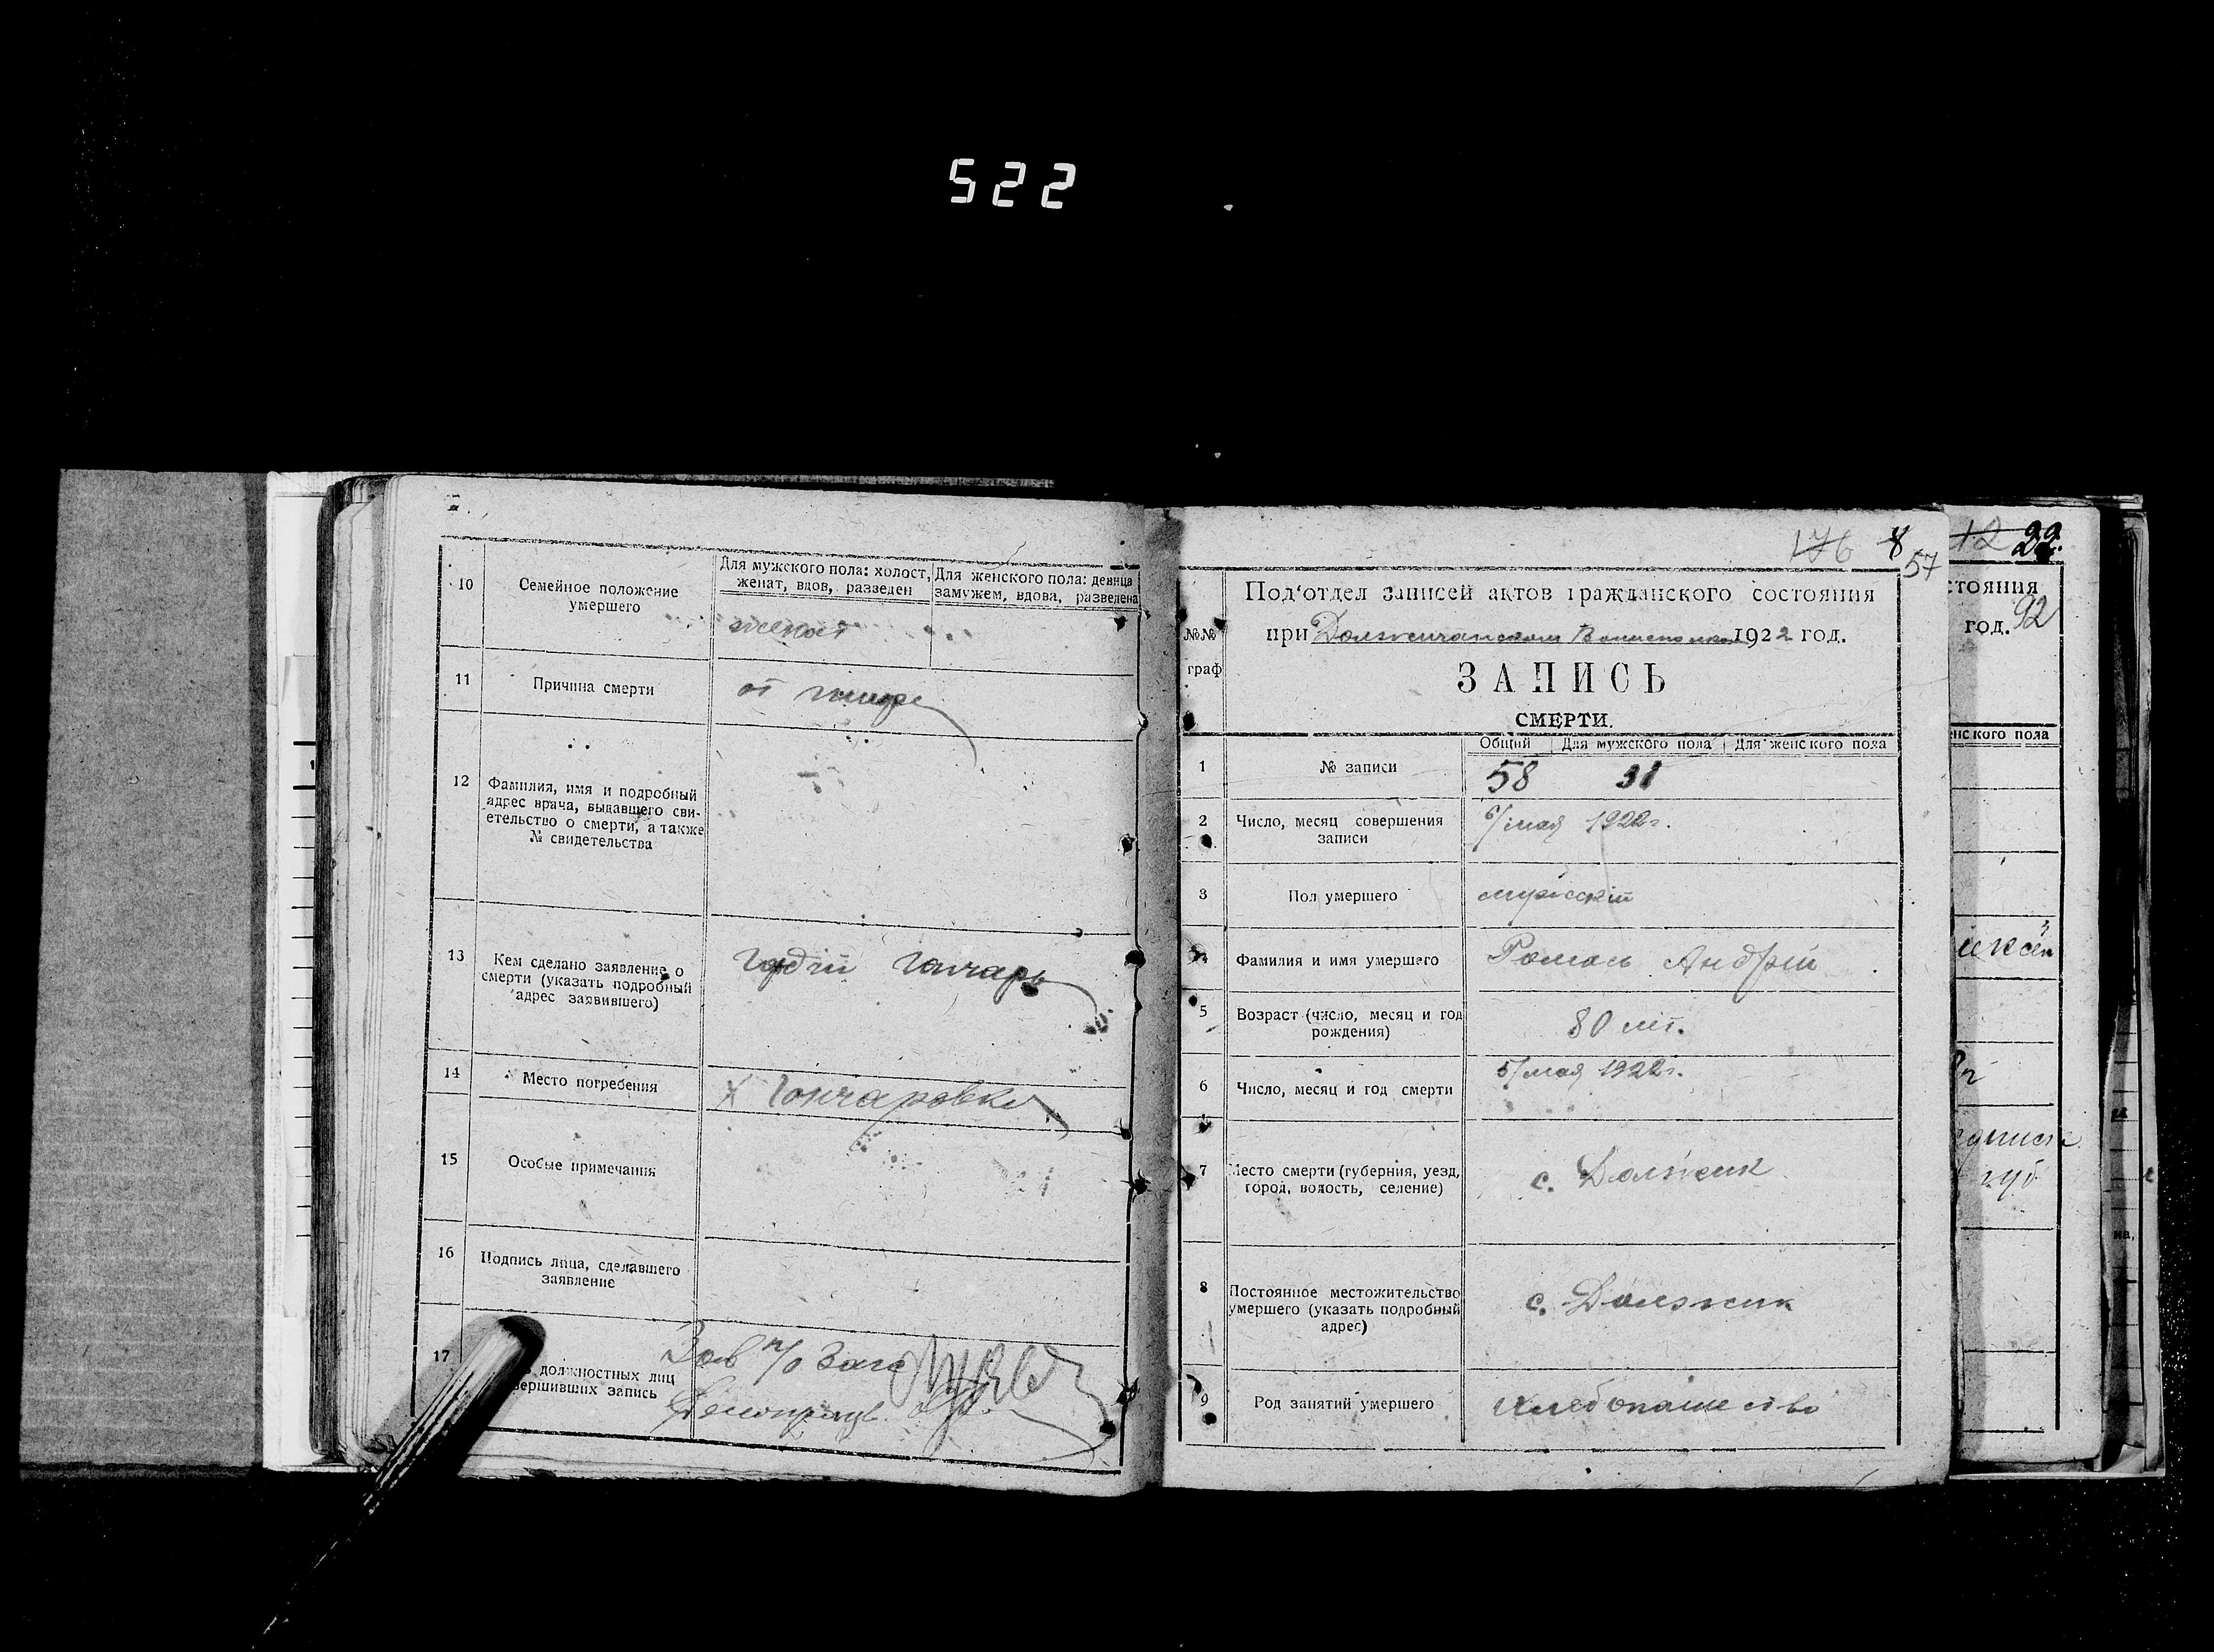 522
10
Семейное положение
умершего
Для мужского пола: холост,
женат, вдов, разведен
Для женского пола: девица
замужем, вдова, разведена
женат
11
Причина смерти
от
12
Фамилия, имя и подробный
адрес врача, выдавшего сви-
етельство о смерти, а также
№ свидетельства
13
Кем сделано заявление о
смерти (указать подробный
адрес заявившего)
Гордій Гончаръ
14
Место погребения
х Гончаровка
15
Особые примечания
16
Подпись лица, сделавшего
заявление
17
должностных лиц
вершивших запись
Зав п/о Загс
Делопроизв.
176 8
57
Под'отдел записей актов гражданского состояния
№№
граф
при Должичанском 1922 год.
ЗАПИСЬ
СМЕРТИ.
Общий Для мужского пола Для женского пола
1
№ записи
58 31
2
Число, месяц совершения
записи
6/мая 1922г.
3
Пол умершего
мужскій
Фамилия и имя умершего
Ромась Андрій
5
Возраст (число, месяц и год
рождения)
80 лѣт.
6
Число, месяц и год смерти
5/мая 1922г.
7
Место смерти (губерния, уезд,
город, волость, селение)
с. Должик
8
Постоянное местожительство
умершего (указать подробный
адрес)
с. Должик
9
Род занятий умершего
Хлебопашество
12 22
стояния
год. 92
енского пола